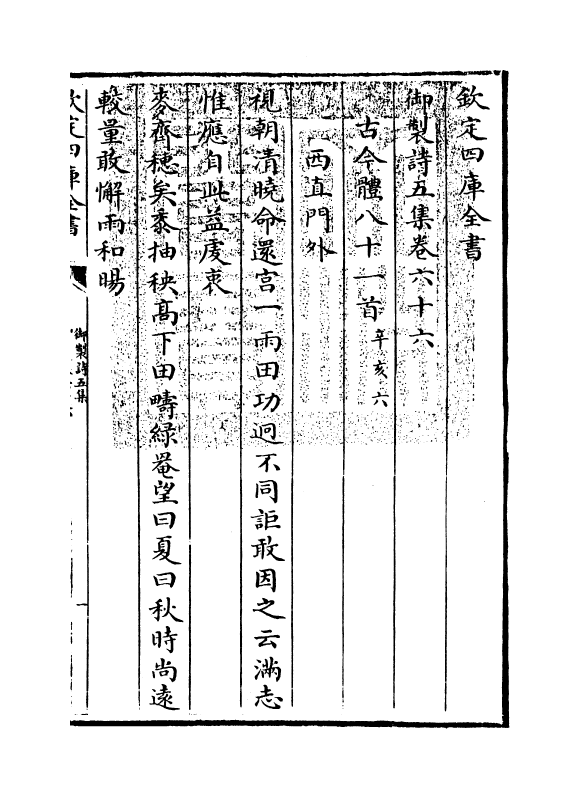 欽定四庫全書
御製詩五集卷六十六
古今體八十一首辛亥六
西直門外
視朝清曉命還宫一雨田功迥不同詎敢因之云滿志
惟應自此益虔衷
麥齊穗矣黍抽秧髙下田疇綠罨望曰夏曰秋時尚遠
較量敢懈雨和暘
欽定四庫全書
御製詩五集
一